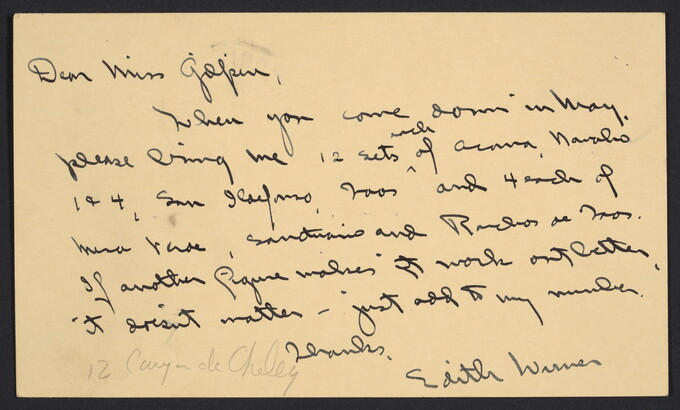 Dear Miss Gilpin,
When you come down in May,
please bring me 12 sets each of Acoma, Navaho
1 & 4, San Ildefonso, Taos and 4 each of
Mesa Verde, Santuario and Ranchos de Taos.
If another figure makes it work out better,
it doesn't matter – just add to my number.
Thanks.
Edith Warner
12 Canyon de Chelly